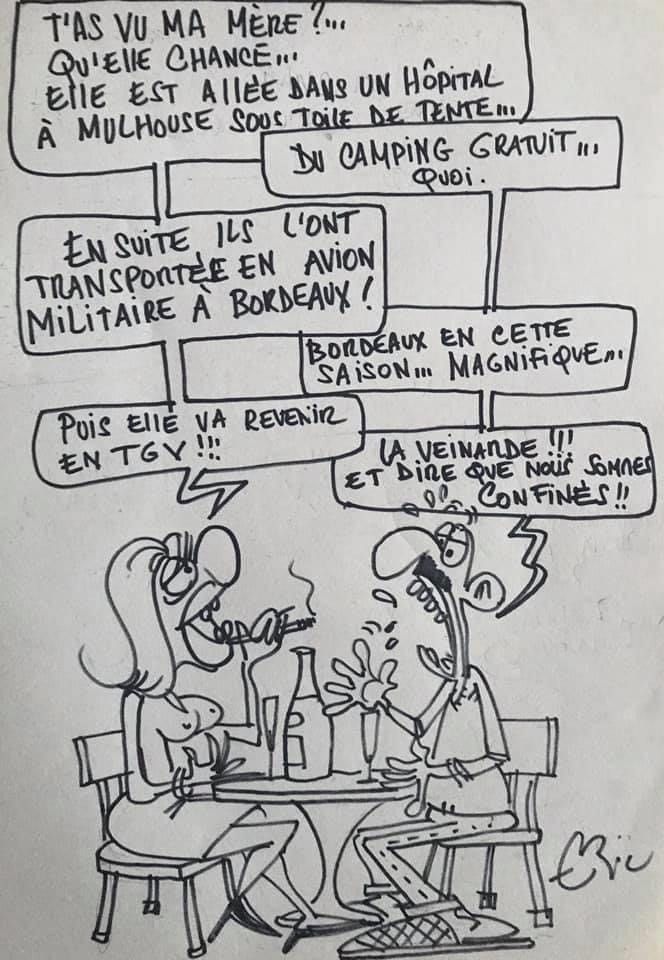 T'AS VU MA MÈRE ?...
QU'ELLE CHANCE...
ELLE EST ALLÉE DANS UN HÔPITAL
À MULHOUSE SOUS TOILE DE TENTE...
DU CAMPING GRATUIT...
QUOI.
EN SUITE ILS L'ONT
TRANSPORTÉE EN AVION
MILITAIRE À BORDEAUX !
BORDEAUX EN CETTE
SAISON... MAGNIFIQUE...
PUIS ELLE VA REVENIR
EN TGV !!!
LA VEINARDE !!!
ET DIRE QUE NOUS SOMMES
CONFINÉS !!
ERIC